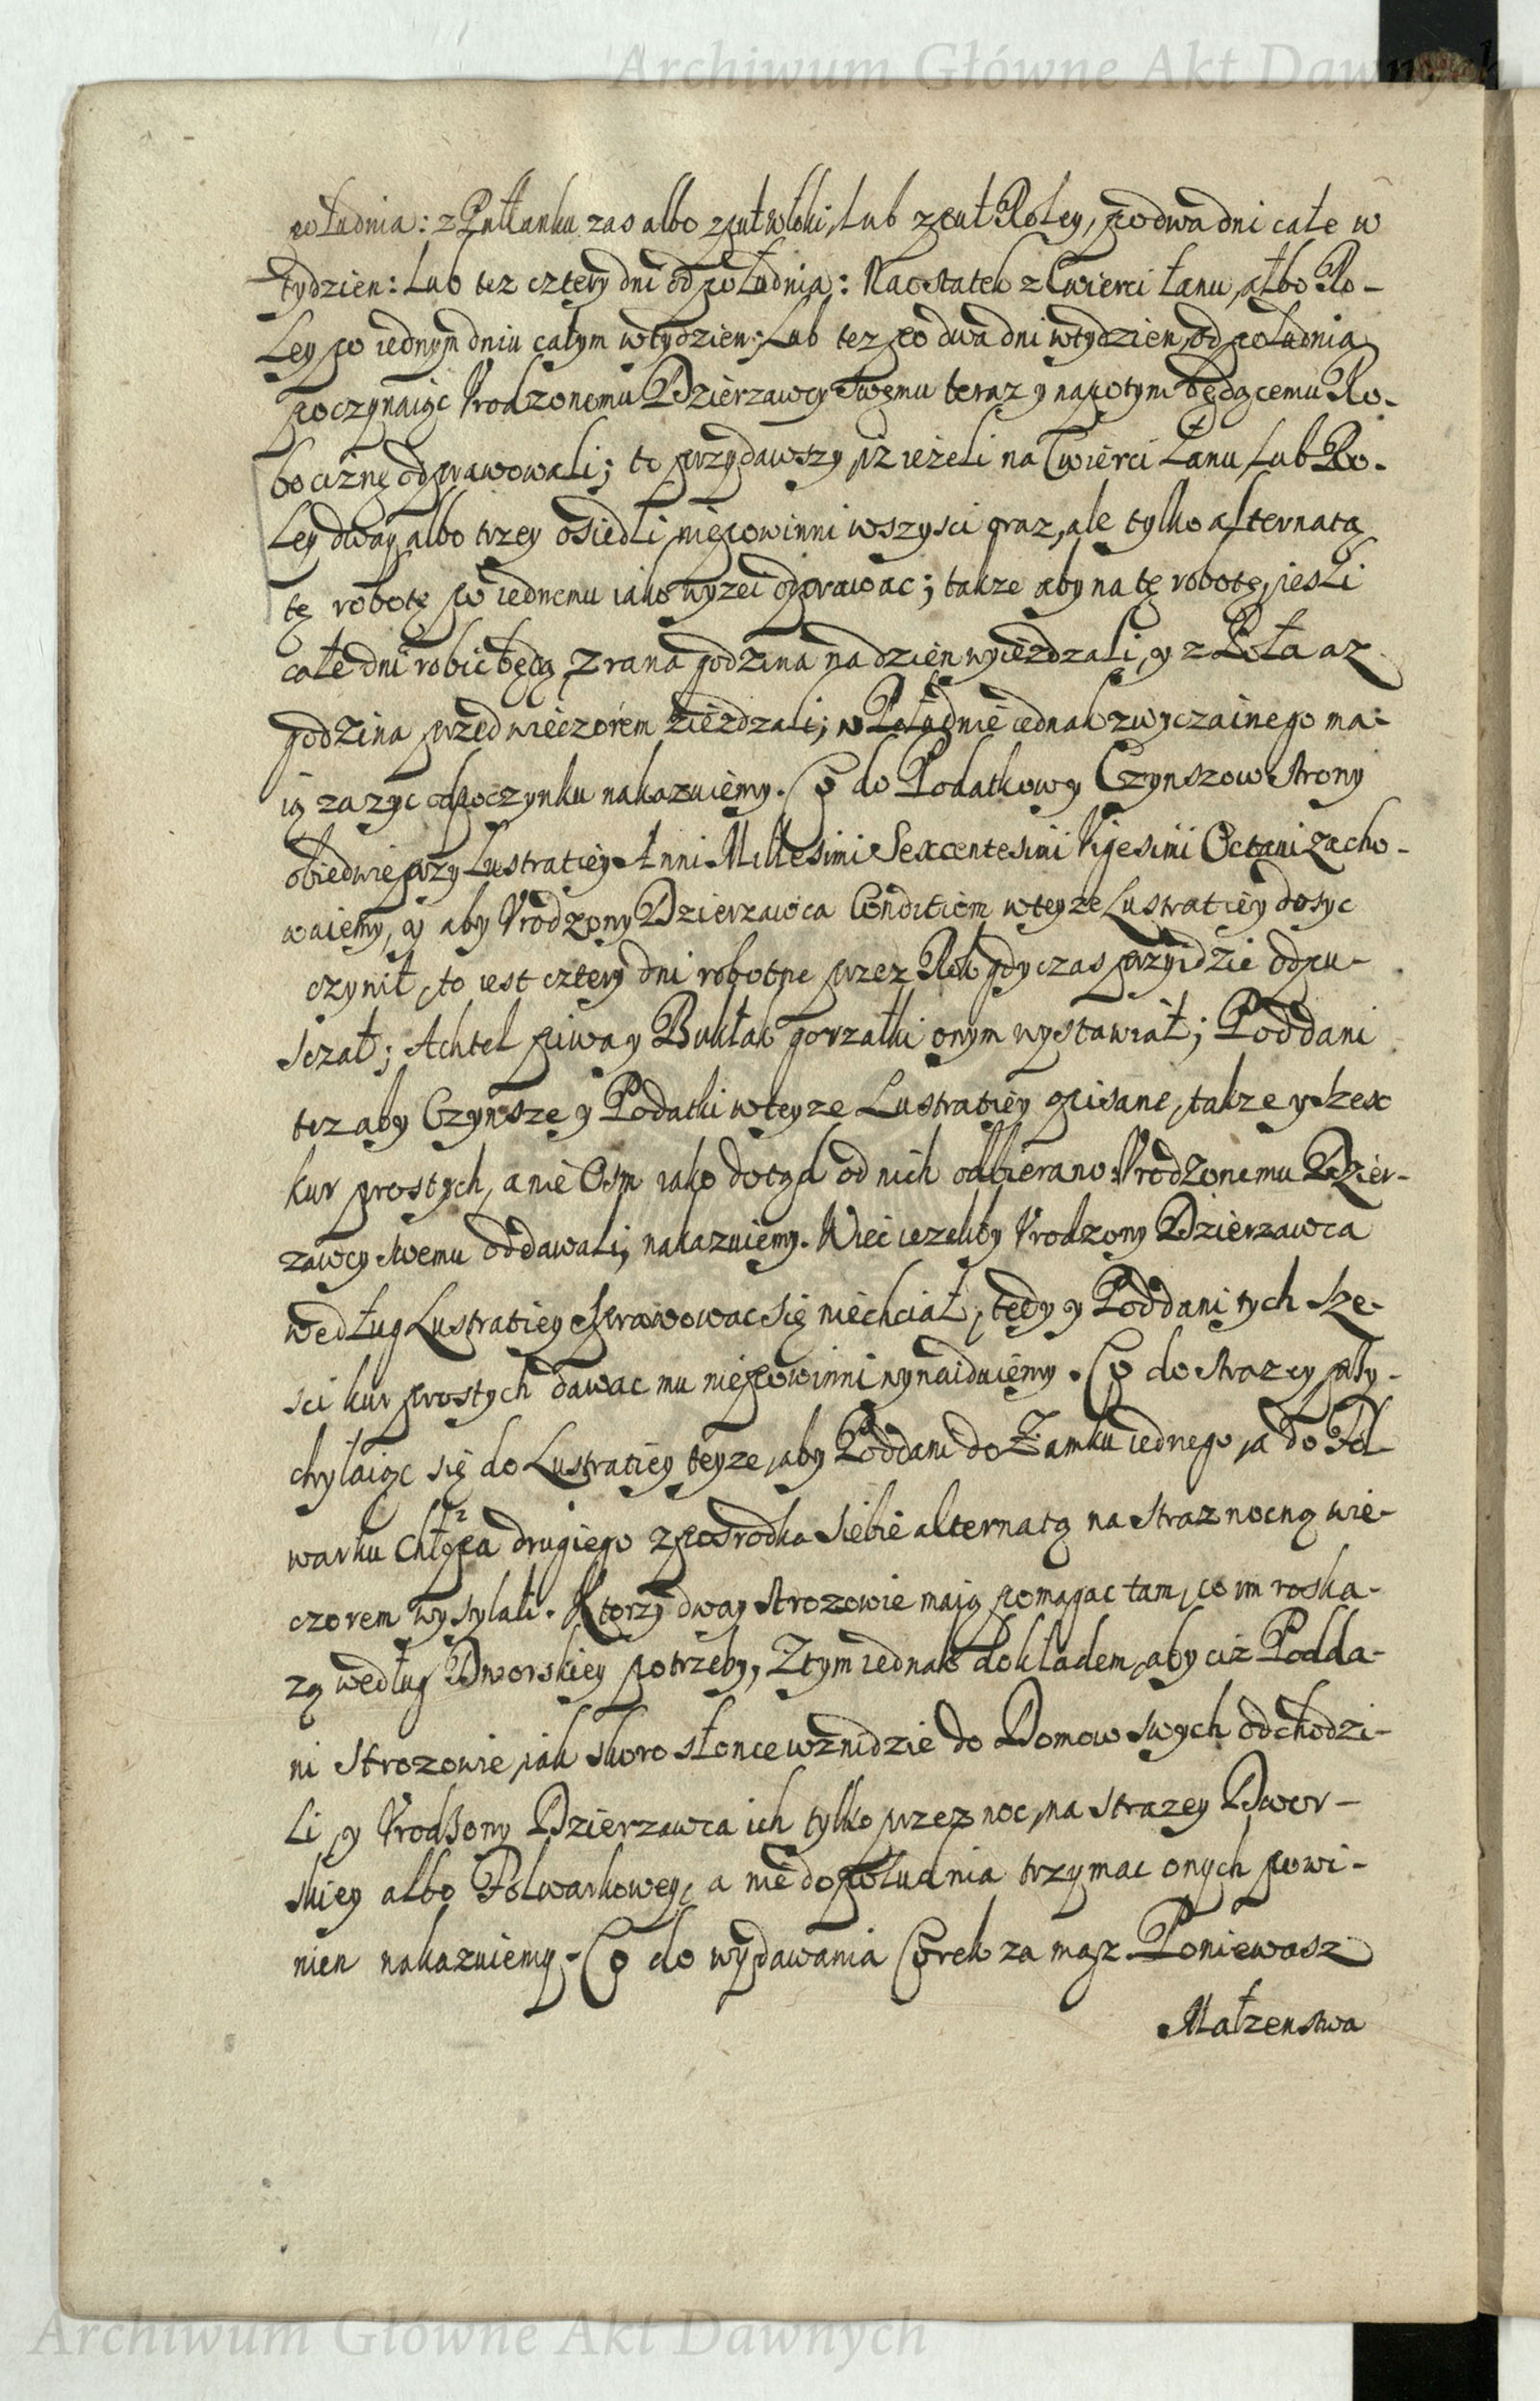 Archiwum Główne Akt Dawnych
południa: z Pułłanku zas albo z puł włoki, lub z puł Roley, po dwa dni całe w
tydzien: lub tez cztery dni od południa: Naostatek z Cwierci łanu, albo Ro-
ley po iednym dniu całym w tydzien; lub tez po dwa dni w tydzien od południa
poczynaiąc Vrodzonemu Dzierzawcy swemu teraz y napotym będącemu Ro-
bociznę odprawowali; to przydawszy, iz ieżeli na Cwierci Łanu lub Ro-
ley dway albo trzey osiedli, niepowinni wszysci oraz, ale tylko alternatą
tę robotę po iednemu iako wyzei odprawac; takze aby na tę robotę, iesli
całe dni robic będą, z rana godzina na dzień wyiezdzali, y z Pola az
godzina przed wieczorem ziezdzali; w Południe iednak zwyczainego ma-
ią zazyc odpoczynku nakazuiemy. Co do Podatkow y Czynszow strony
obiedwie przy Lustratiey Anni Millesimi Sexcentesimi Vigesimi Octaui zacho-
wuiemy, y aby Vrodzony Dzierzawca Conditiom w teyze Lustratiey dosyc
czynił, to iest cztery dni robotne przez Rok gdy czas przyidzie odpu-
sczał; Achtel piwa y Bukłak gorzałki onym wystawiał; Poddani
tez aby Czynsze y Podatki w teyze Lustratiey opisane, takze y szesc
kur prostych, a nie Osm iako dotąd od nich odbierano Vrodzonemu Dzier-
zawcy swemu oddawali, nakazuiemy. Wiec iezeliby Vrodzony Dzierzawca
według Lustratiey sprawowac się niechciał, tedy y Poddani tych sze-
sci kur prostych dawac mu niepowinni wynaiduiemy. Co do strazy przy-
chylaiąc się do Lustratiey teyze, aby Poddani do Zamku iednego, a do Fol-
warku Chłopa drugiego z posrodka siebie alternatą na straz nocną wie-
czorem wysylali. Ktorzy dway strozowie maią pomagac tam, co im roska-
zą według Dworskiey potrzeby, Z tym iednak dokładem, aby ciż Podda-
ni strozowie, iak skoro słonce wznidzie do Domow swych odchodzi-
li, y Vrodzony Dzierzawca ich tylko przez noc, na strazey Dwor-
skiey albo Folwarkowey, a nie do południa trzymac onych powi-
nien nakazuiemy. Co do wydawania Corek za mąz Poniewasz
Małzenstwa
Archiwum Główne Akt Dawnych